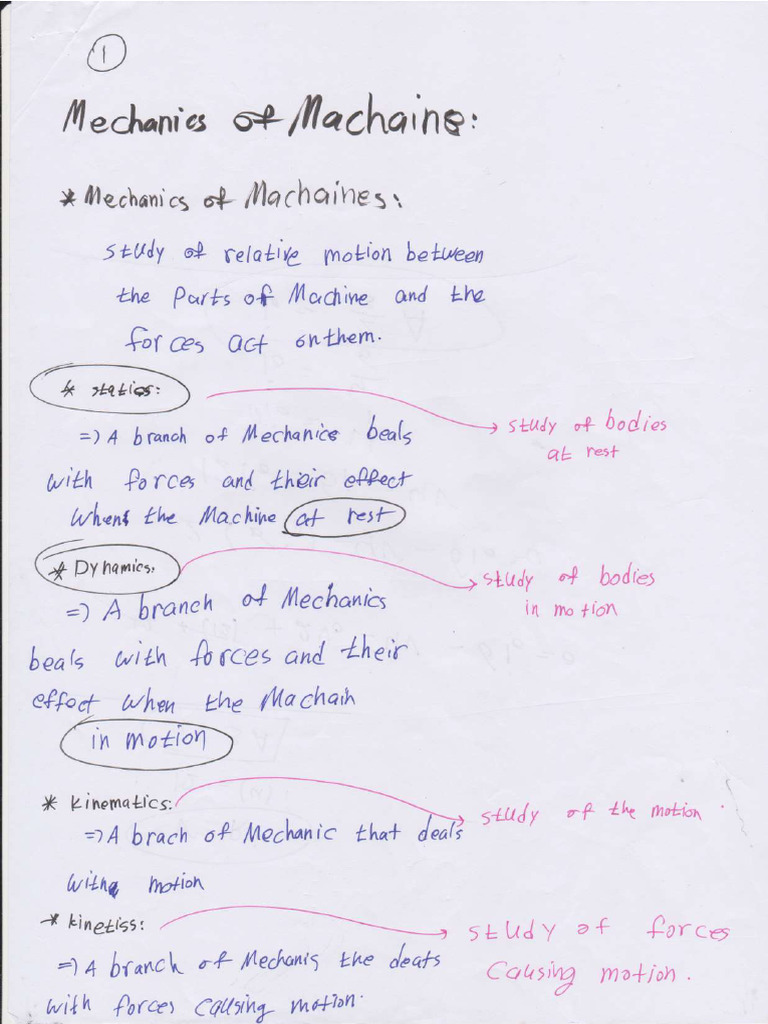 1
Mechanics of Machains:
* Mechanics of Machaines:
study of relative motion between
the Parts of Machine and the
forces act on them.
* statics:
study of bodies
at rest
=) A branch of Mechanics beals
with forces and their effect
when the Machine at rest
* Dynamics:
study of bodies
in motion
=) A branch of Mechanics
beals with forces and their
effect when the Machain
in motion
* Kinematics:
study of the motion
=) A brach of Mechanic that deals
with motion
* kinetiss:
study of forces
causing motion.
=) A branch of Mechanis the deats
with forces causing motion.